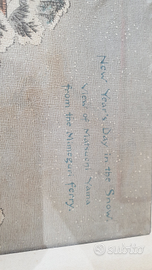 New Year's Day in the Snow
View of Matsuchi Yama
from the Mimeguri Ferry.
subito